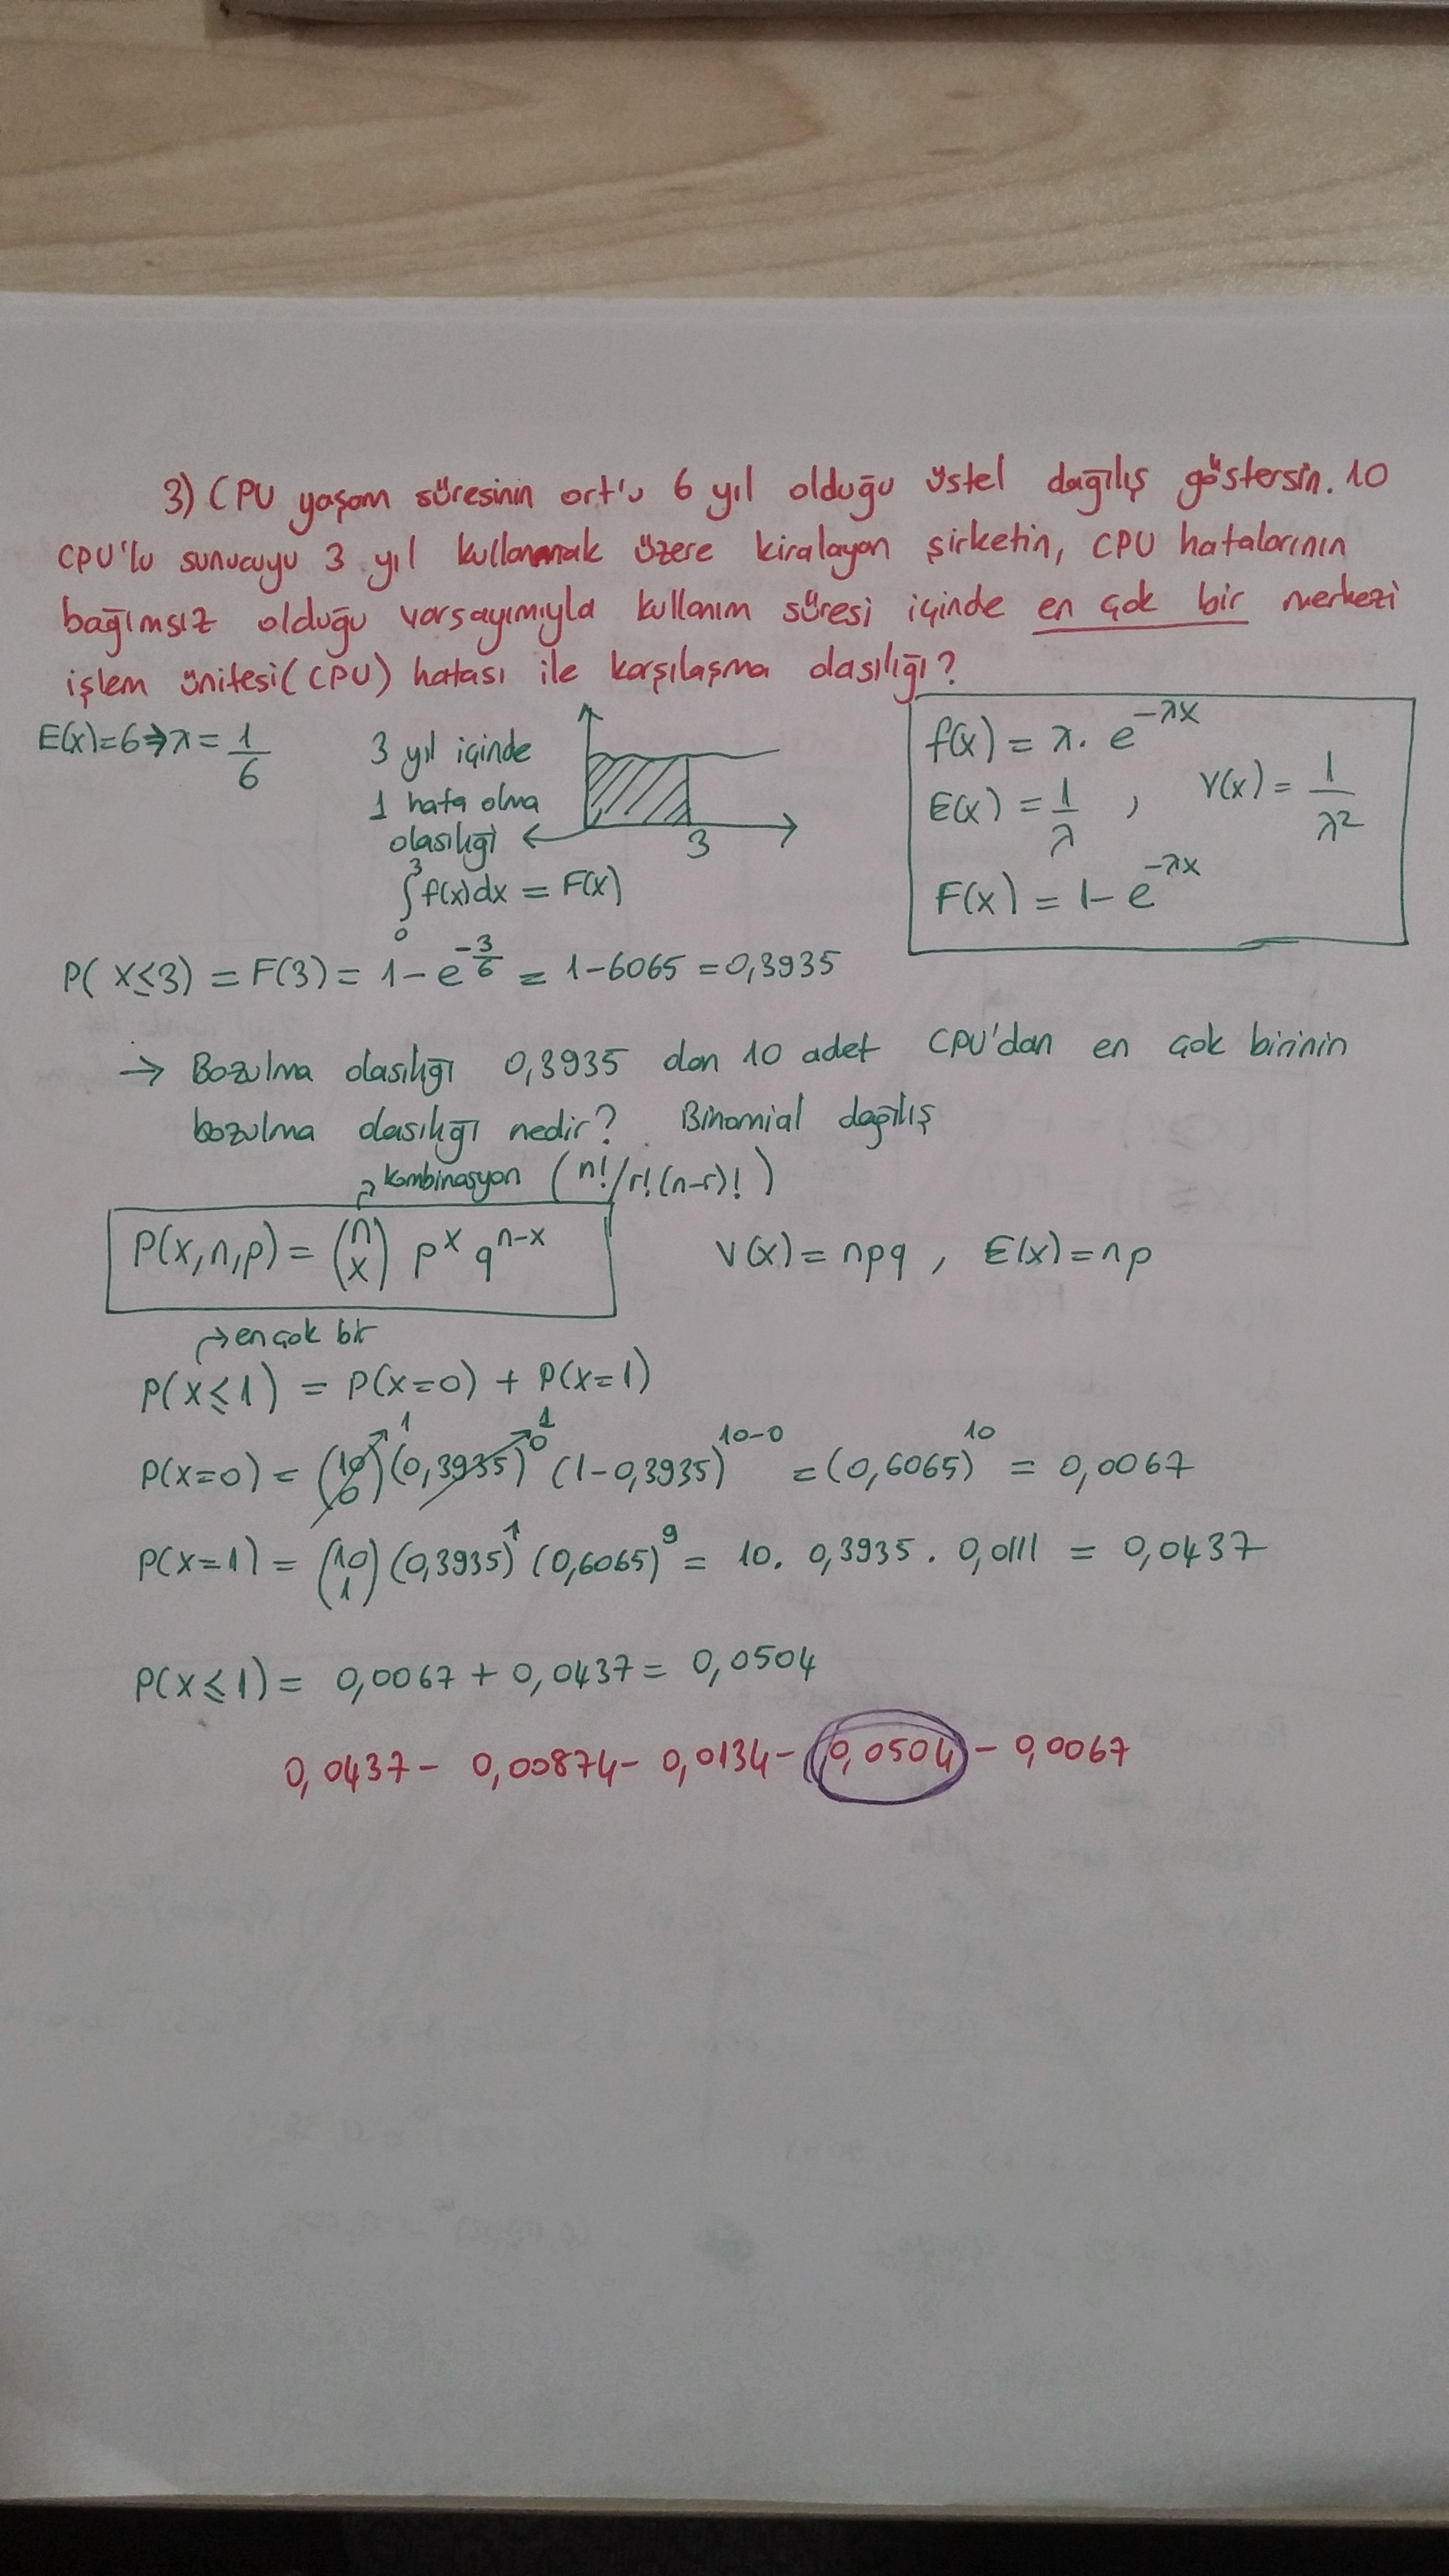 3) CPU yaşam süresinin ort'u 6 yıl olduğu üstel dağılış göstersin. 10
CPU'lu sunucuyu 3 yıl kullanmak üzere kiralayan şirketin, CPU hatalarının
bağımsız olduğu varsayımıyla kullanım süresi içinde en çok bir merkezi
işlem ünitesi(CPU) hatası ile karşılaşma olasılığı?
E(x)=6⇒λ=1/6
3 yıl içinde
1 hata olma
olasılığı
3
∫₀³ f(x)dx = F(x)
f(x) = λ. e^-λx
E(x) = 1/λ , V(x) = 1/λ²
F(x) = 1- e^-λx
P( x≤3) = F(3) = 1-e^-3/6 = 1-6065 = 0,3935
→ Bozulma olasılığı 0,3935 olan 10 adet CPU'dan en çok birinin
bozulma olasılığı nedir? Binomial dağılış
→ kombinasyon (n!/r!(n-r)!)
P(x,n,p) = (n x) p^x q^n-x V(x) = npq , E(x) = np
→ en çok bir
P(x≤1) = P(x=0) + P(x=1)
P(x=0) = (10 0)^1 (0,3935)^0 1 (1-0,3935)^10-0 = (0,6065)^10 = 0,0067
P(x=1) = (10 1) (0,3935)^1 (0,6065)^9 = 10. 0,3935 . 0,0111 = 0,0437
P(x≤1) = 0,0067 + 0,0437 = 0,0504
0,0437 - 0,00874 - 0,0134 - 0,0504 - 0,0067